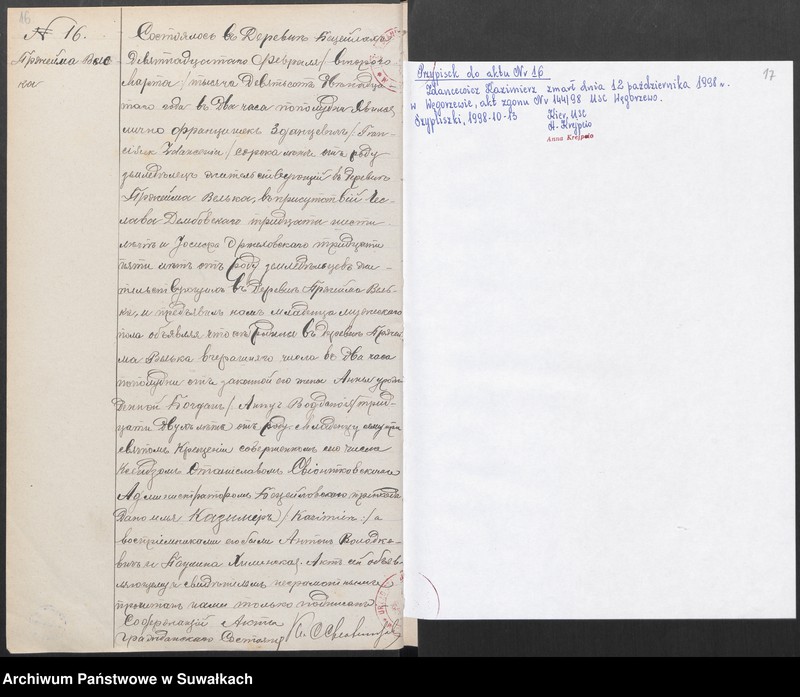 16
№ 16.
Пржейма Высо
ка
Состоялось въ деревнѣ Бецейлахъ
девятнадцатаго Февраля / второго
Марта / тысяча девятьсотъ двѣнадца
таго года въ два часа пополудни. Явился
лично Францишекъ Зданцевичъ /: Fran-
ciszek Zdancewicz / сорока лѣтъ отъ роду
земледѣлецъ жительствующій въ деревнѣ
Пржейма Велька, въ присутствіи Чес-
лава Домбовскаго тридцати шести
лѣтъ и Іосифа Оржеховскаго тридцати
пяти лѣтъ отъ роду земледѣльцевъ жи-
тельствующихъ въ деревнѣ Пржейма Вель-
ка, и предъявилъ намъ младенца мужескаго
пола объявляя что онъ родился въ деревнѣ Пржей
ма Велька вчерашняго числа въ два часа
пополудни отъ законной его жены Анны урож
денной Богданъ /: Anny Bogdan :/ трид-
цати двухъ лѣтъ отъ роду. Младенцу сему при
святомъ крещеніи совершенномъ сего числа
Ксендзомъ Станиславомъ
Администраторомъ Бецейловскаго прихода
дано имя Казимѣръ / Kazimierz :/ а
воспріемниками его были Антонъ Володко-
вичъ и Паулина Хилинская. Актъ сей объяв-
ляющему и свидѣтелямъ неграмотнымъ
прочитанъ нами только подписанъ.
Содержащій Акты
Гражданскаго Состоянія Кс.
17
Przypisek do aktu Nr 16
Zdancewicz Kazimierz zmarł dnia 12 października 1998 r.
w Węgorzewie, akt zgonu Nr 144/98 USC Węgorzewo.
Szypliszki, 1998-10-13
Kier. USC
A. Krejpcio
Anna Krejpcio
Archiwum Państwowe w Suwałkach